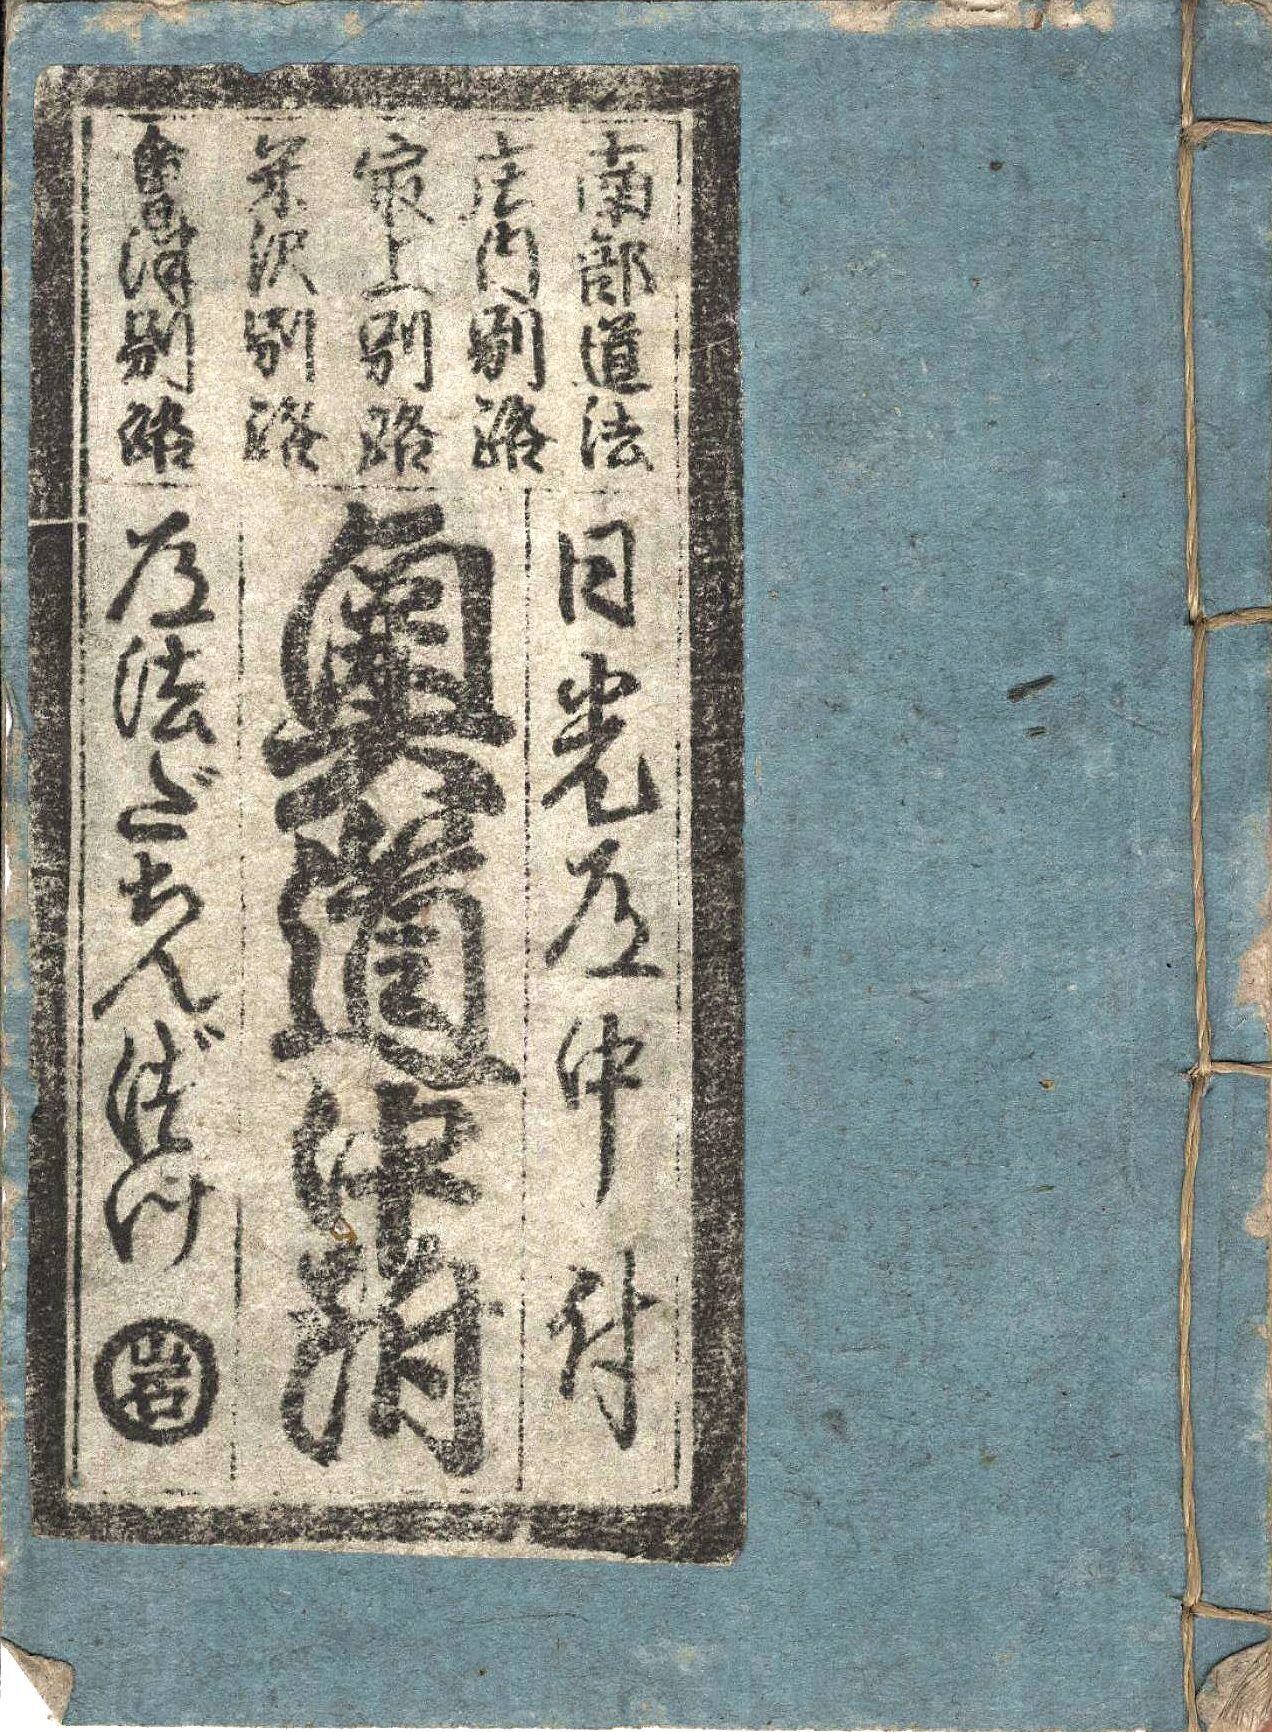 南部道法
庄内別路
最上別路
米沢別路
會津別路
日光道中付
奥道中
道法だちんづけ
岩